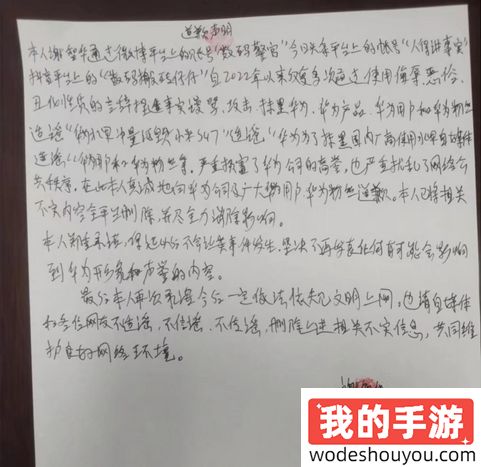 道歉声明
本人谢智华通过微博平台上的账号"数码警官"今日头条平台上的帐号"人得讲事实"
抖音平台上的"数码搬砖仔仔"自2022年以来多次通过使用侮辱恶俗、
丑化性质的言语捏造事实侵害、攻击、抹黑华为、华为产品、华为用户和华为粉丝
造谣 小米 "造谣"华为为了抹黑国内厂商使用水军自媒体
造谣 和华为粉丝等。严重损害了华为公司的商誉,也严重扰乱了网络公
共秩序。在此本人真诚地向华为公司及广大华为用户、华为粉丝道歉。本人已将相关
不实内容全平台删除,并尽全力消除影响。
本人郑重承诺,保证以后不会让类事件发生,坚决不再发表任何有可能会影响
到华为形象和声誉的内容。
最后本人再次承诺今后一定依法依规文明上网,也请自媒体
和各位网友不造谣、不信谣、不传谣,删除上述相关不实信息,共同维
护良好网络环境。
我的手游
wodeshouyou.com